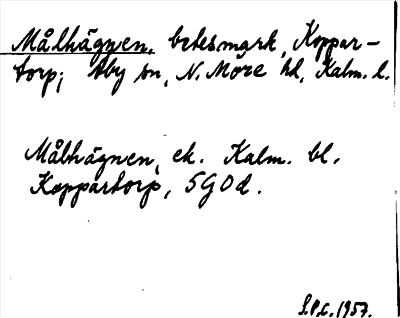 Målhägnen, betesmark, Koppar-
torp; Åby sn, N. Möre hd, Kalm. l.
Målhägnen, ek. Kalm. bl.
Koppartorp, 5G0d.
S.P.C. 1957.